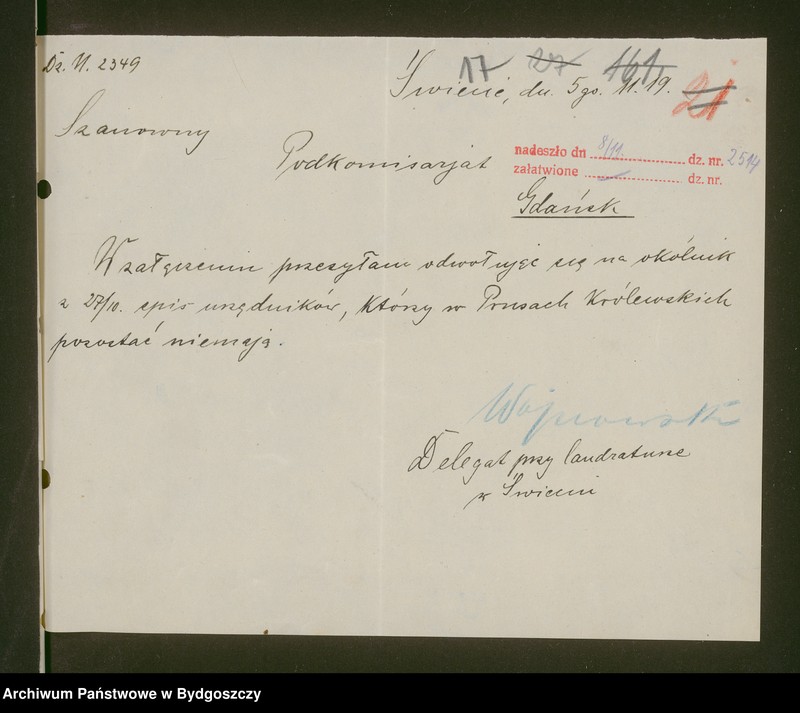 Dz. N. 2349
17 27 161. 21
Świecie, dn. 5go. 11. 19.
Szanowny
Podkomisarjat
nadeszło dn 8/11. dz. nr. 2514
załatwione dz. nr.
Gdańsk
W załączeniu przesyłam odwołując się na okólnik
z 27/10. spis urzędników, którzy w Prusach Królewskich
pozostać niemają.
Wojnowski
Delegat przy landraturze
w Świeciu
Archiwum Państwowe w Bydgoszczy